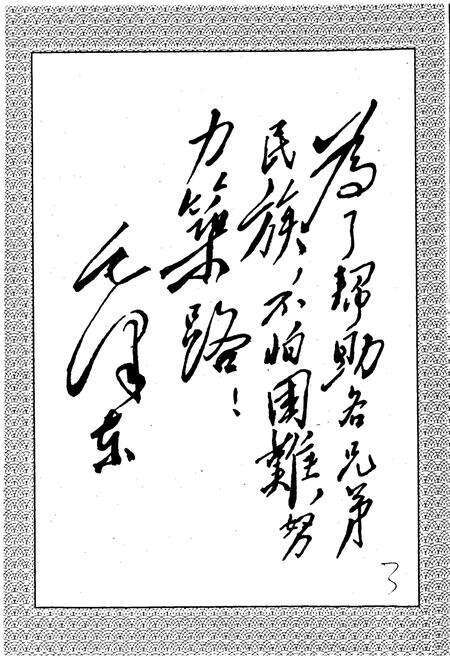 為了幇助各兄弟
民族，不怕困難，努
力築路！
毛澤东
3